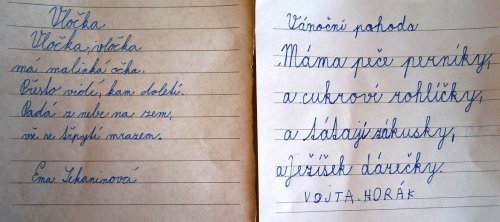 Vločka
Vločka, vločka
má malinká očka.
Přesto vidí, kam doletí.
Padá z nebe na zem,
vše se třpytí mrazem.
Ema
Vánoční pohoda
Máma peče perníky,
a cukroví rohlíčky,
a tátají zákusky,
a Ježíšek dárečky.
VOJTA HORÁK